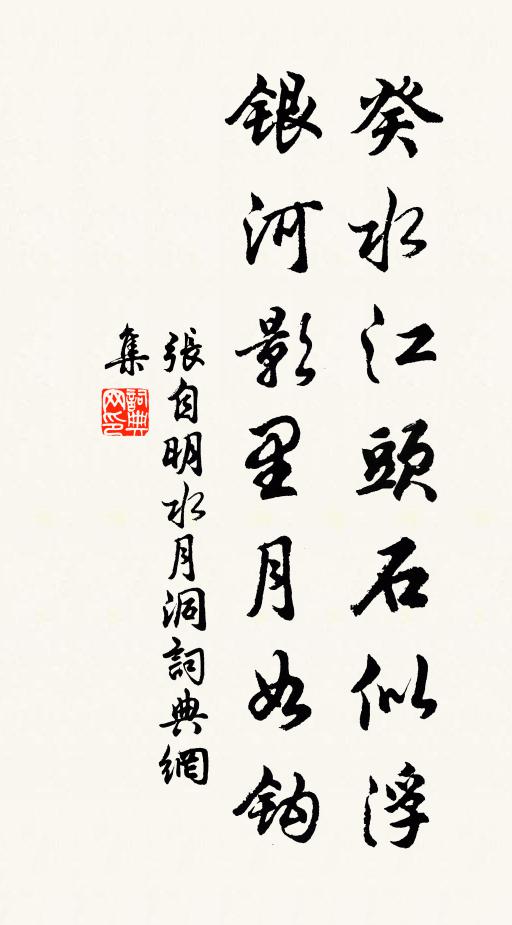 癸水江頭石似浮
銀河影里月如鈎
張自明水月洞詞典網
集
詞典网印